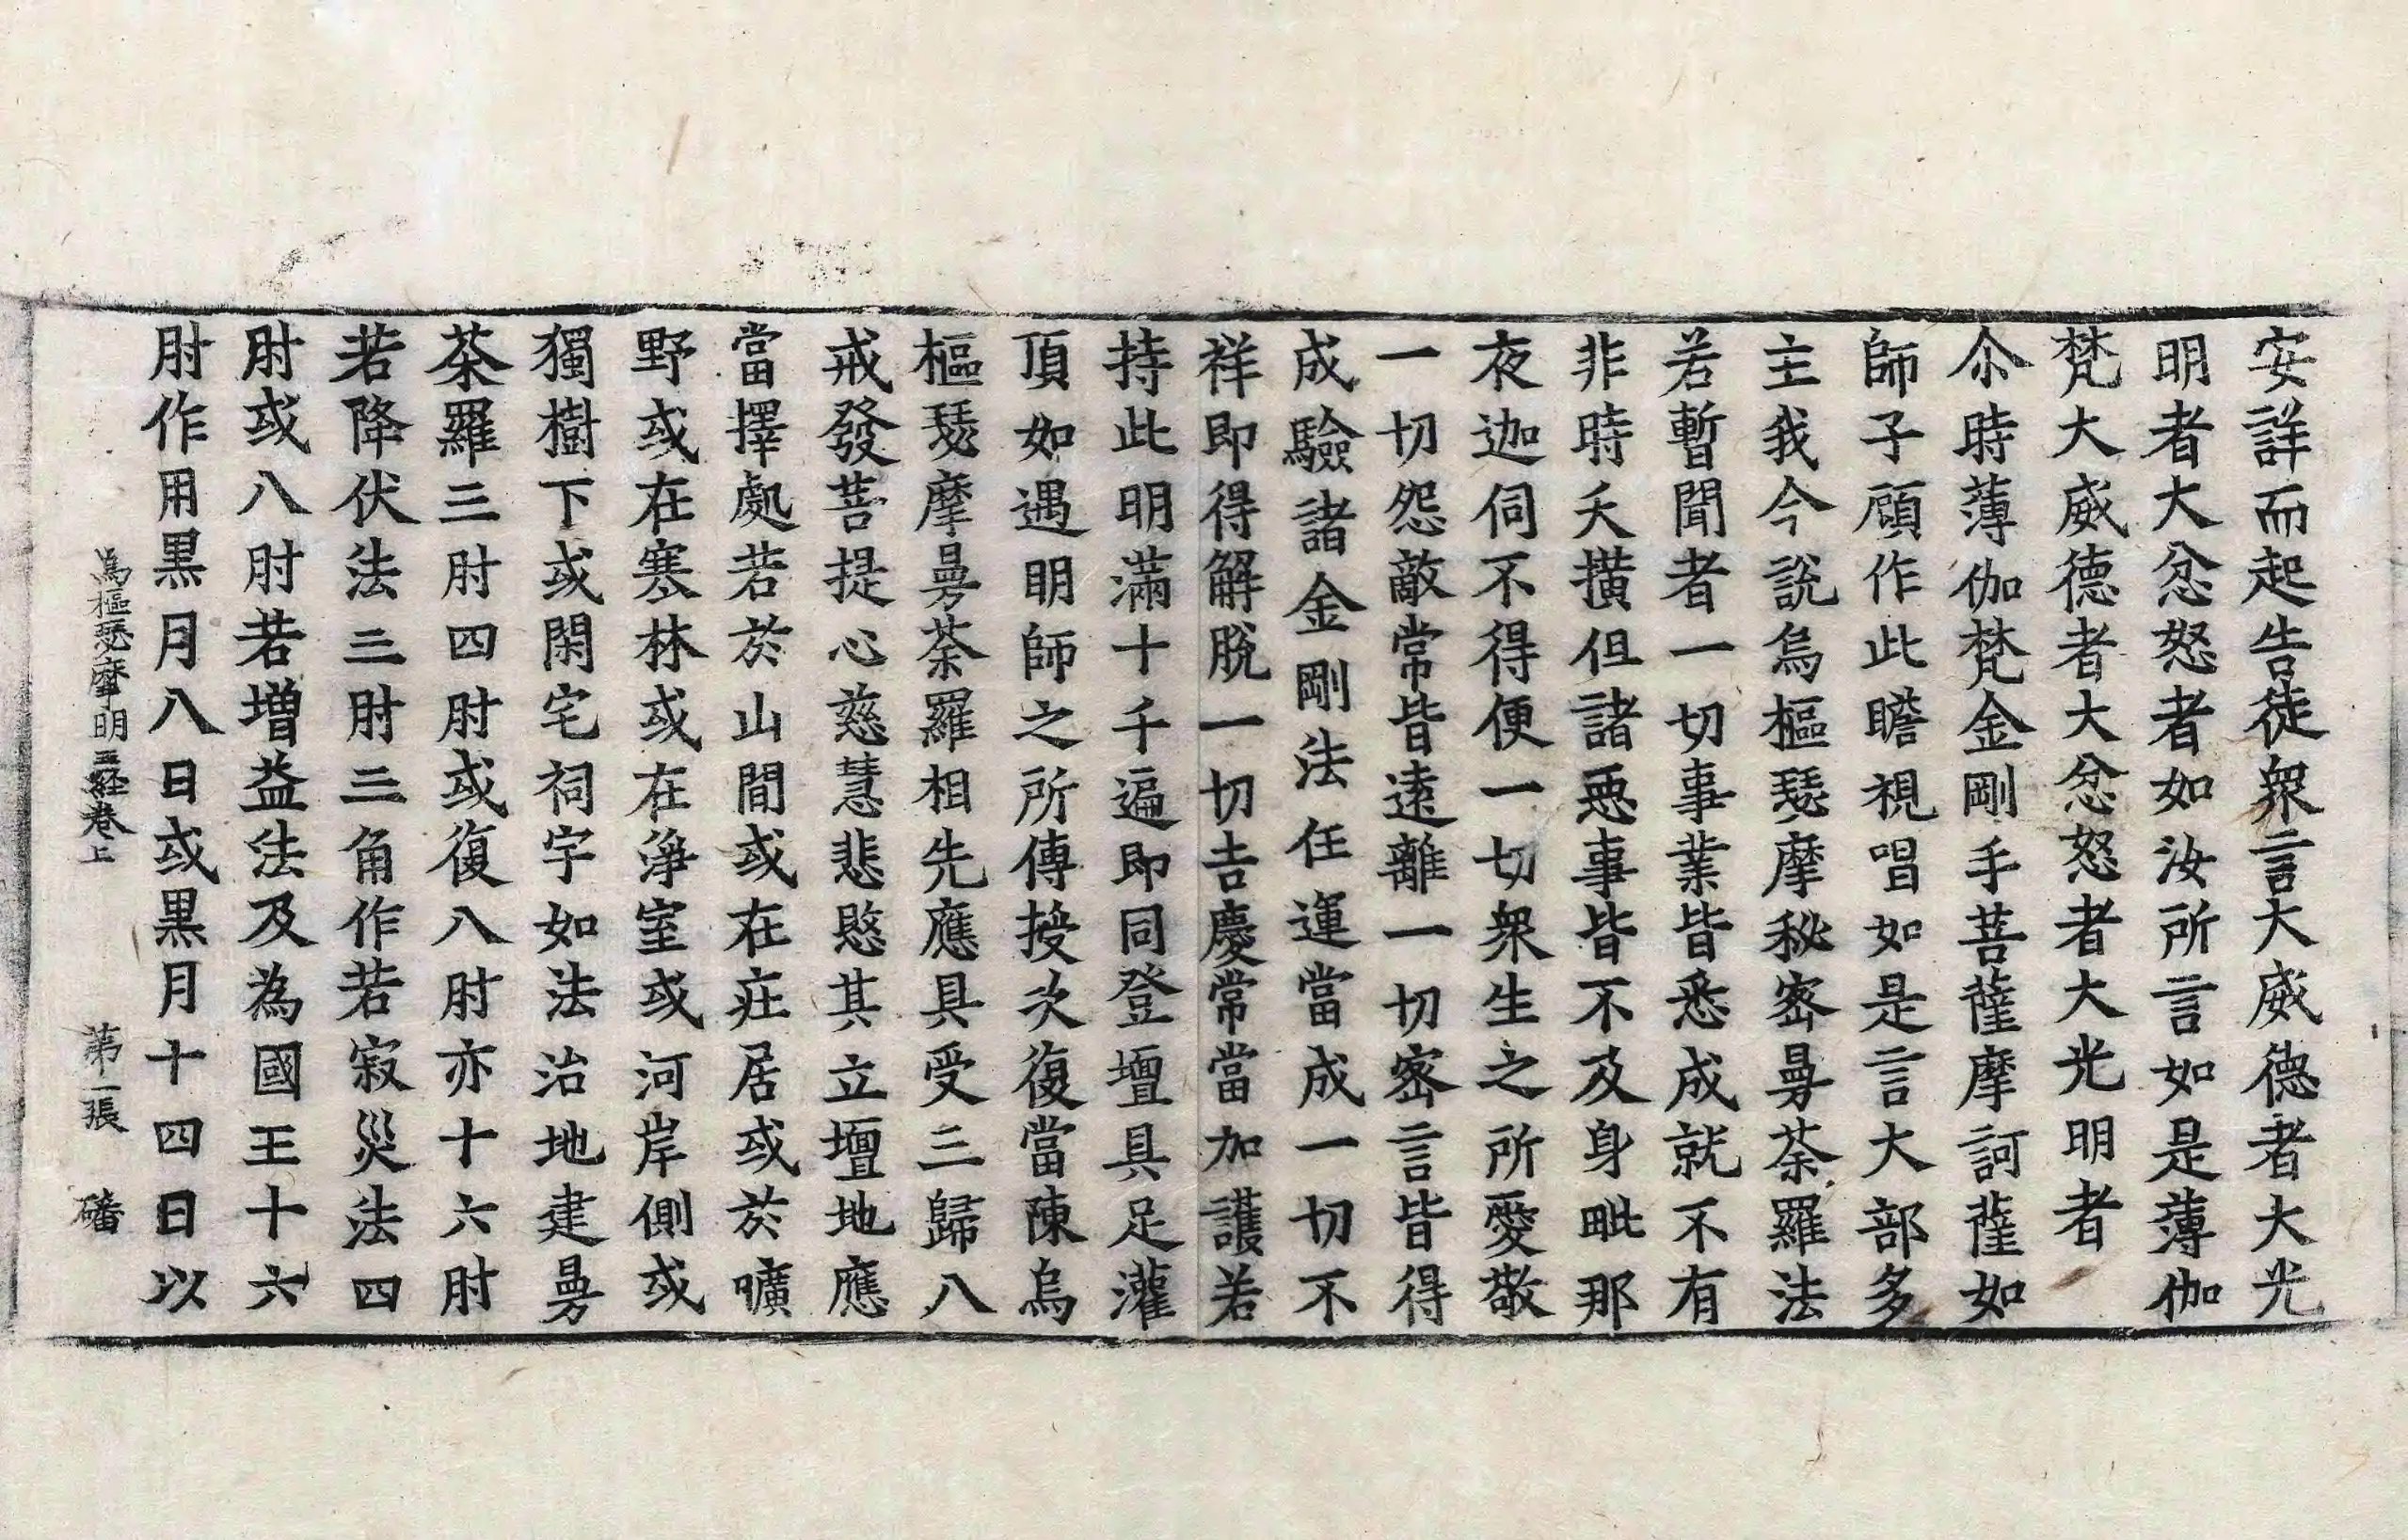 安詳而起告徒衆言大威德者大光
明者大忿怒者如汝所言如是薄伽
梵大威德者大忿怒者大光明者
尒時薄伽梵金剛手菩薩摩訶薩如
師子頋作此瞻視唱如是言大部多
主我今説烏樞瑟摩秘密曼荼羅法
若暫聞者一切事業皆悉成就不有
非時夭撗但諸惡事皆不及身毗那
夜迦伺不得便一切衆生之所愛敬
一切怨敵常皆遠離一切密言皆得
成驗諸金剛法任運當成一切不
祥即得解脫一切吉慶常當加護若
持此明滿十千遍即同登壇具足灌
頂如遇明師之所傳授次復當陳烏
樞瑟摩曼荼羅相先應具受三歸八
戒發菩提心慈慧悲愍其立壇地應
當擇處若於山間或在庄居或於曠
野或在寒林或在淨室或河岸側或
獨樹下或閑宅祠宇如法治地建曼
荼羅三肘四肘或復八肘亦十六肘
若降伏法三肘三角作若寂災法四
肘或八肘若增益法及為國王十六
肘作用黒月八日或黒月十四日以
烏樞瑟摩明王経卷上 第二張 磻